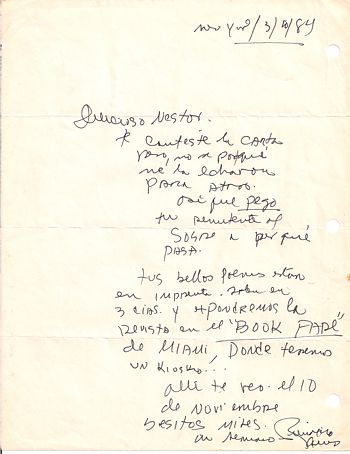 New York/3/N/84
Querido Nestor.
te conteste la carta
pero, no se porqué
me la echaron
para atrás.
así que pego
tu remitente al
sobre a ver qué
pasa.
tus bellos poemas estan
en imprenta. salen en
3 días. y expondremos la
revista en el "BOOK FAIR"
de MIAMI, Donde tenemos
un Kiosko...
allí te veo. el 10
de Noviembre
besitos miles.